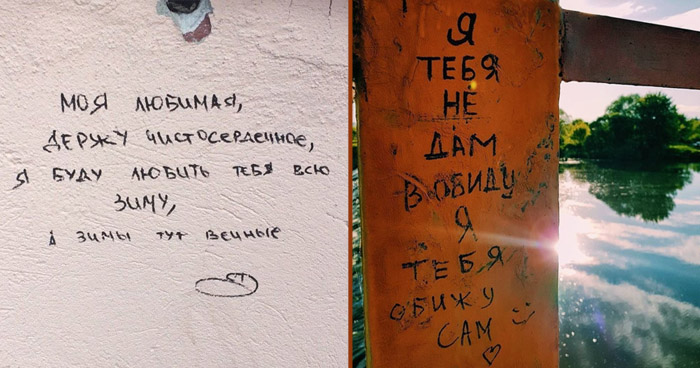 МОЯ ЛЮБИМАЯ,
ДЕРЖУ ЧИСТОСЕРДЕЧНОЕ,
Я БУДУ ЛЮБИТЬ ТЕБЯ ВСЮ
ЗИМУ,
А ЗИМЫ ТУТ ВЕЧНЫЕ
Я
ТЕБЯ
НЕ
ДАМ
В ОБИДУ
Я
ТЕБЯ
ОБИЖУ
САМ